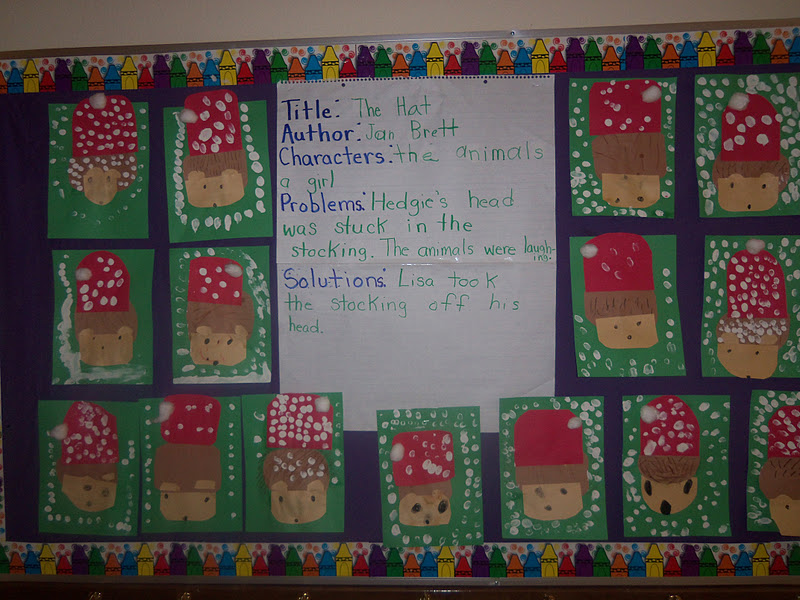 Title: The Hat
Author: Jan Brett
Characters: the animals
a girl
Problems: Hedgie's head
was stuck in the
stocking. The animals were laugh-
ing.
Solutions: Lisa took
the stocking off his
head.